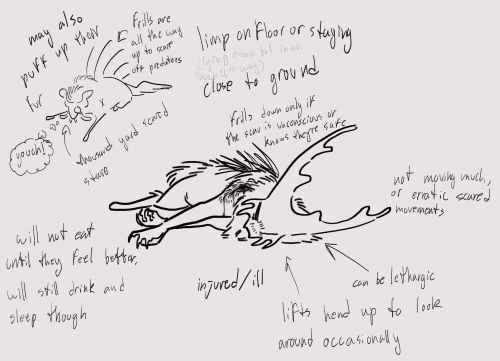 may also
puff up their
fur
Frills are
all the way
up to scare
off predators
youch!
thousand yard scared
stare
limp on floor or staying
(lying down but in an
way)
close to ground
frills down only if
the scav is unconscious or
knows they're safe
not moving much,
or erratic scared
movements
will not eat
until they feel better,
will still drink and
sleep though
injured/ill
can be lethargic
lifts head up to look
around occasionally